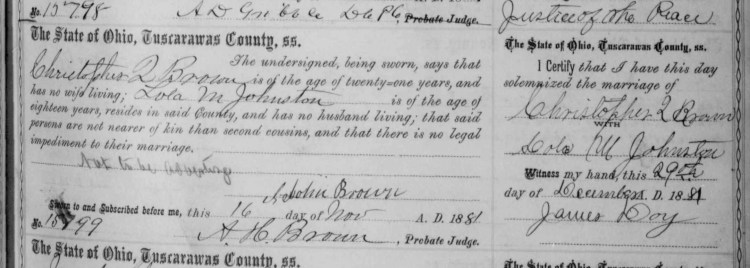 No. 15798 A D Gribble Dept Clk, Probate Judge.
The State of Ohio, Tuscarawas County, ss.
The undersigned, being sworn, says that
Christopher Q Brown is of the age of twenty-one years, and
has no wife living; Lola M Johnston is of the age of
eighteen years, resides in said County, and has no husband living; that said
persons are not nearer of kin than second cousins, and that there is no legal
impediment to their marriage.
Not to be
John Brown
Sworn to and Subscribed before me, this 16 day of Nov A. D. 1881
No. 15799 A. H. Brown, Probate Judge.
The State of Ohio, Tuscarawas County, ss.
Justice of the Peace
The State of Ohio, Tuscarawas County, ss.
I Certify that I have this day
solemnized the marriage of
Christopher Q Brown
WITH
Lola M Johnston
Witness my hand, this 29th
day of December A. D. 1881
James
The State of Ohio, Tuscarawas County, ss.